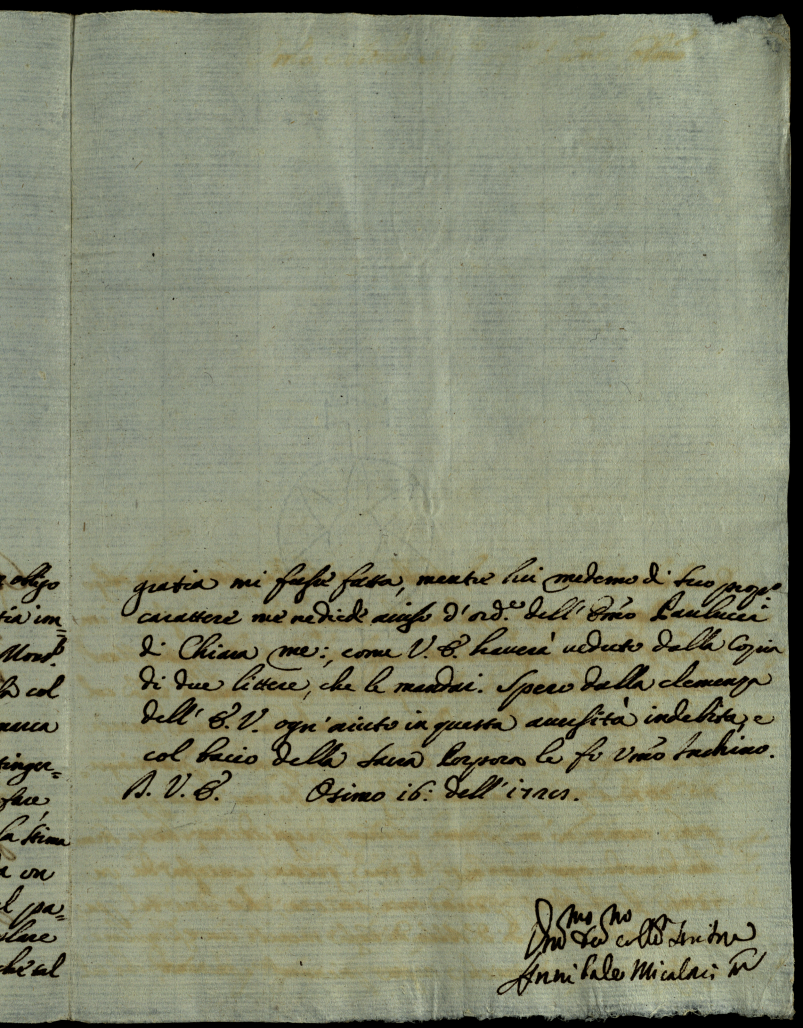 obligo
tia im=
Mons.r
col
marca
tinger=
face
la stima
on
el pa=
che al
gratia mi fusse fatta, mentre lui medemo di suo prop.o
carattere me ne diede auiso d'ord.e dell' Emo Paulucci
di Chiara me:, come V. E. hauerà ueduto dalla Copia
di due littere, che le mandai. Spero dalla clemenza
dell' E. V. ogn'aiuto in questa auersità indebita, e
col bacio della Sacra Porpora le fo Vmo Inchino.
D. V. E. Osimo 16: dell'
Annibale Micalori